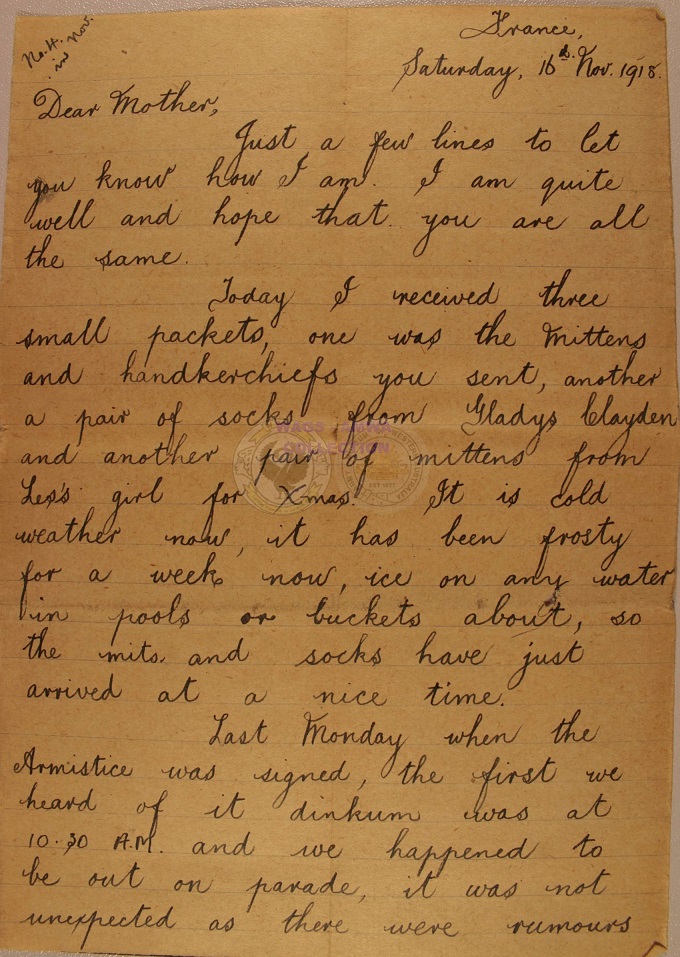 No. 4.
in Nov.
France,
Saturday, 16th Nov. 1918.
Dear Mother,
Just a few lines to let
you know how I am. I am quite
well and hope that you are all
the same.
Today I received three
small packets, one was the mittens
and handkerchiefs you sent, another
a pair of socks from Gladys Clayden
and another pair of mittens from
Les's girl for Xmas. It is cold
weather now, it has been frosty
for a week now, ice on any water
in pools or buckets about, so
the mits. and socks have just
arrived at a nice time.
Last Monday when the
Armistice was signed, the first we
heard of it dinkum was at
10.30 A.M. and we happened to
be out on parade, it was not
unexpected as there were rumours